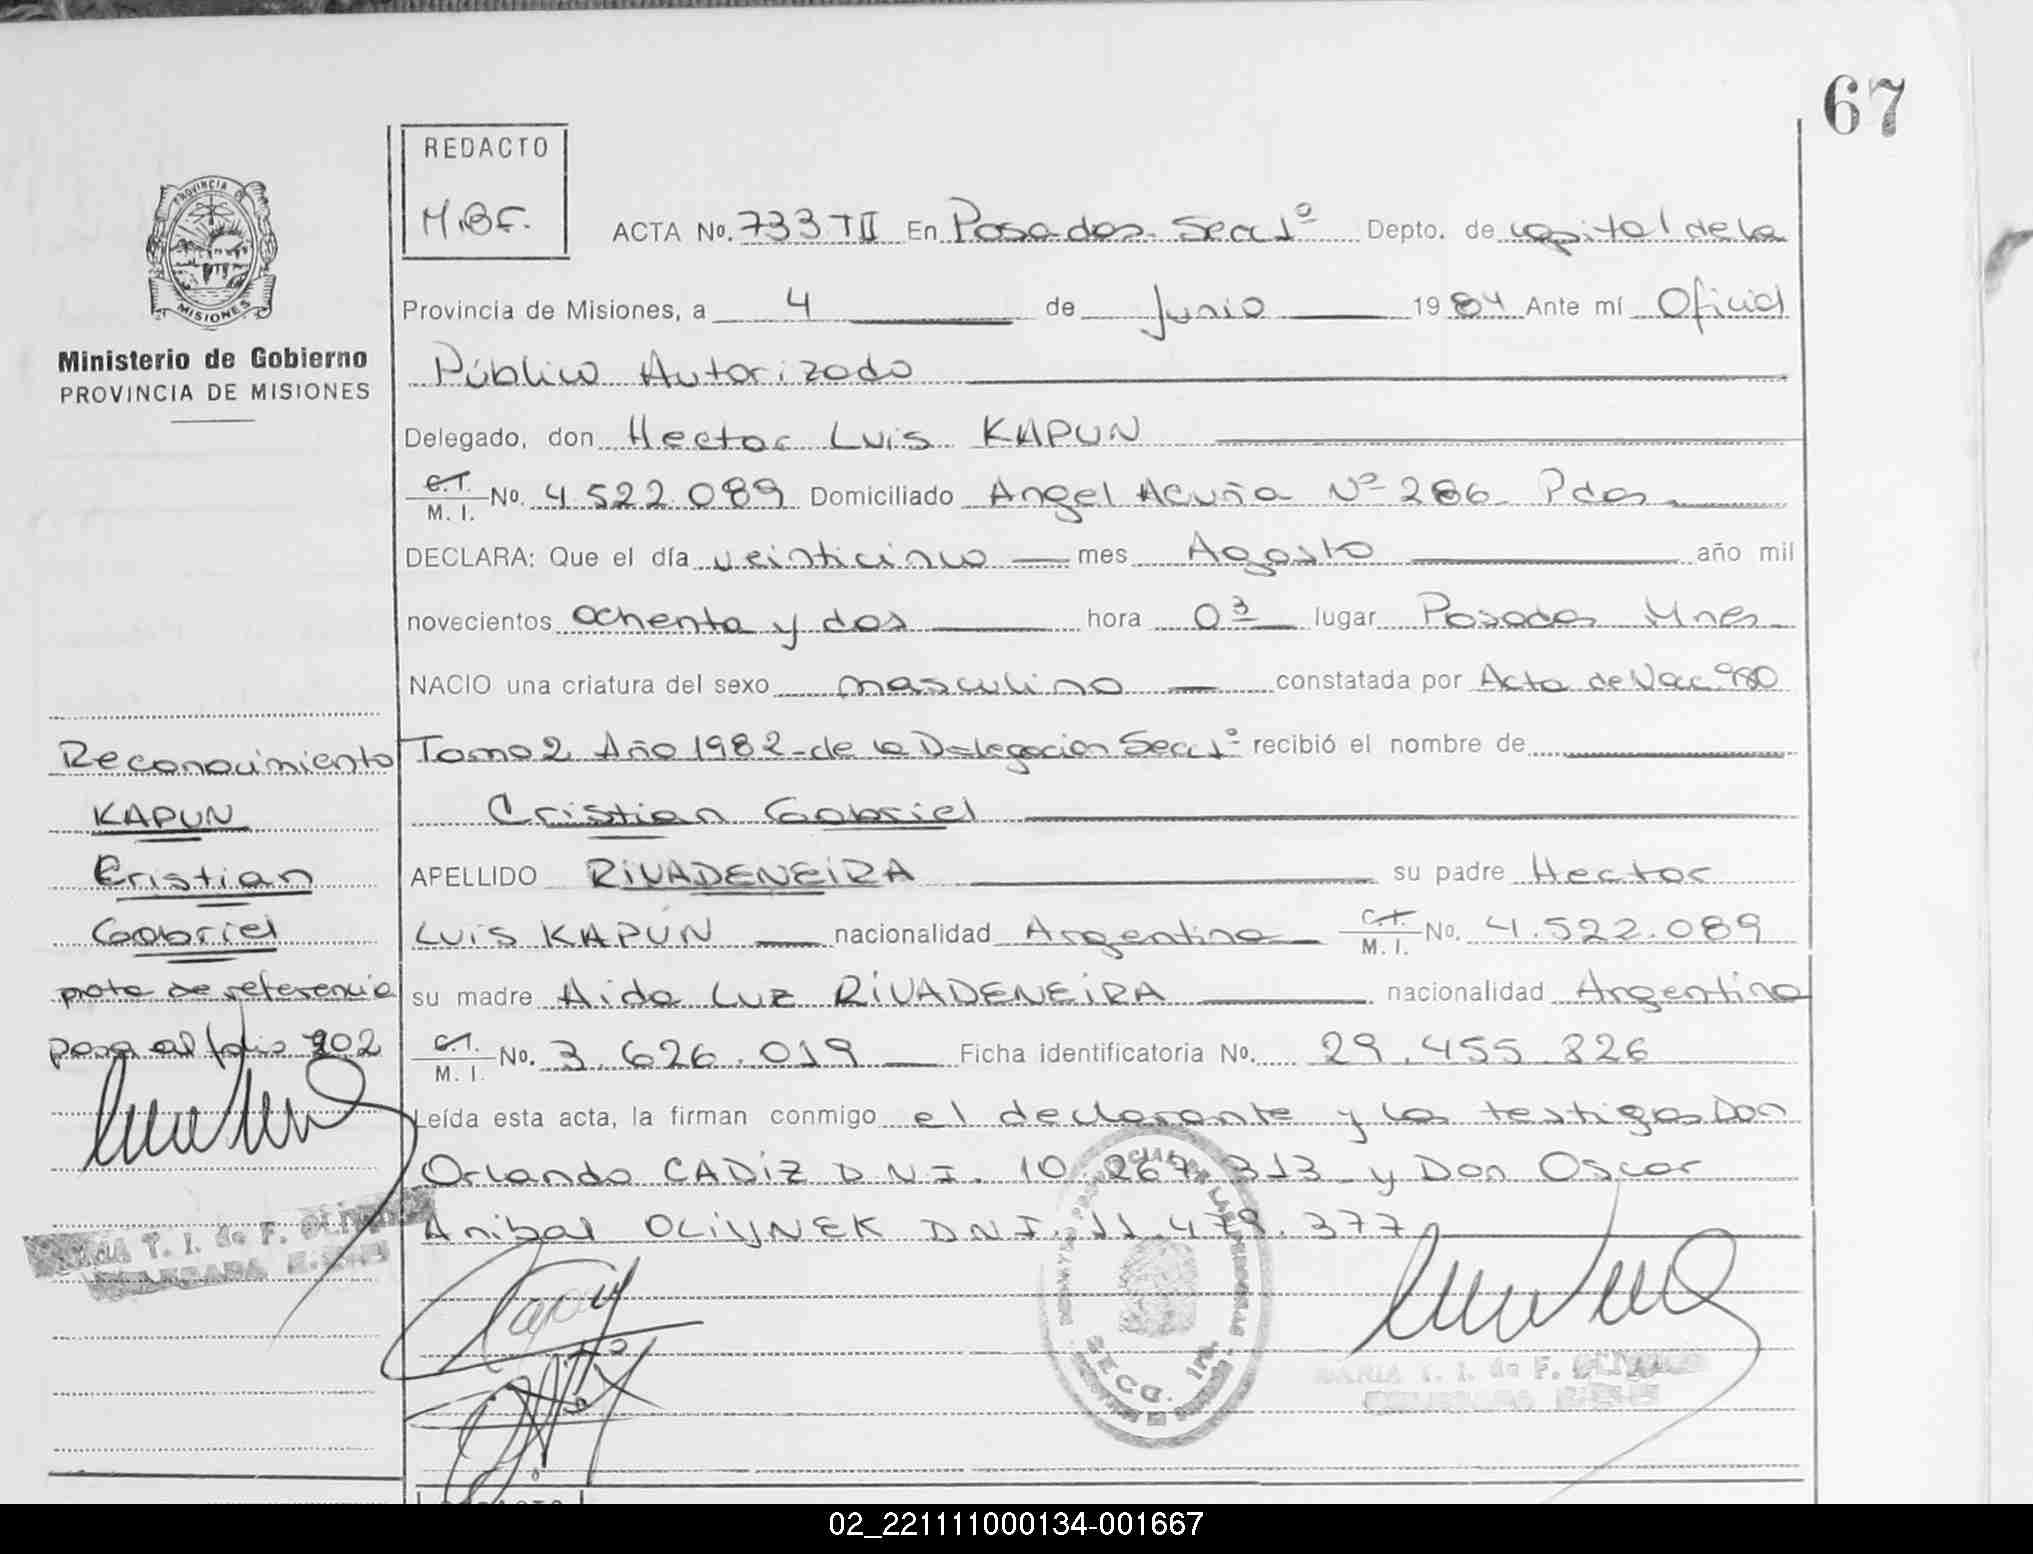 67
REDACTO
M.B.F.
PROVINCIA DE
MISIONES
Ministerio de Gobierno
PROVINCIA DE MISIONES
ACTA No. 733 TII En Posadas Secc 1º Depto. de capital de la
Provincia de Misiones, a 4 de Junio 1984 Ante mí Oficial
Público Autorizado
Delegado, don Hector Luis KAPUN
C.I. M. I. No. 4.522.089 Domiciliado Angel Acuña Nº 286 Pdas
DECLARA: Que el día veinticinco mes Agosto año mil
novecientos ochenta y dos hora 03 lugar Posadas Mnes
NACIO una criatura del sexo masculino constatada por Acta de Nac. 980
Tomo 2 Año 1982 de la Delegacion Secc 1º recibió el nombre de
Cristian Gabriel
APELLIDO RIVADENEIRA su padre Hector
LUIS KAPUN nacionalidad Argentina C.I. M. I. No. 4.522.089
su madre Aida Luz RIVADENEIRA nacionalidad Argentina
C.I. M. I. No. 3.626.019 Ficha identificatoria No. 29.455.826
Leída esta acta, la firman conmigo el declarante y los testigos Don
Orlando CADIZ D.N.I. 10.267.313 y Don Oscar
Anibal OLIYNEK D.N.I. 11.479.377
Reconocimiento
KAPUN
Cristian
Gabriel
nota de referencia
pasa al folio 202
T. I. de F.
SECC. 1ra.
MARIA T. I. de F.
02_221111000134-001667